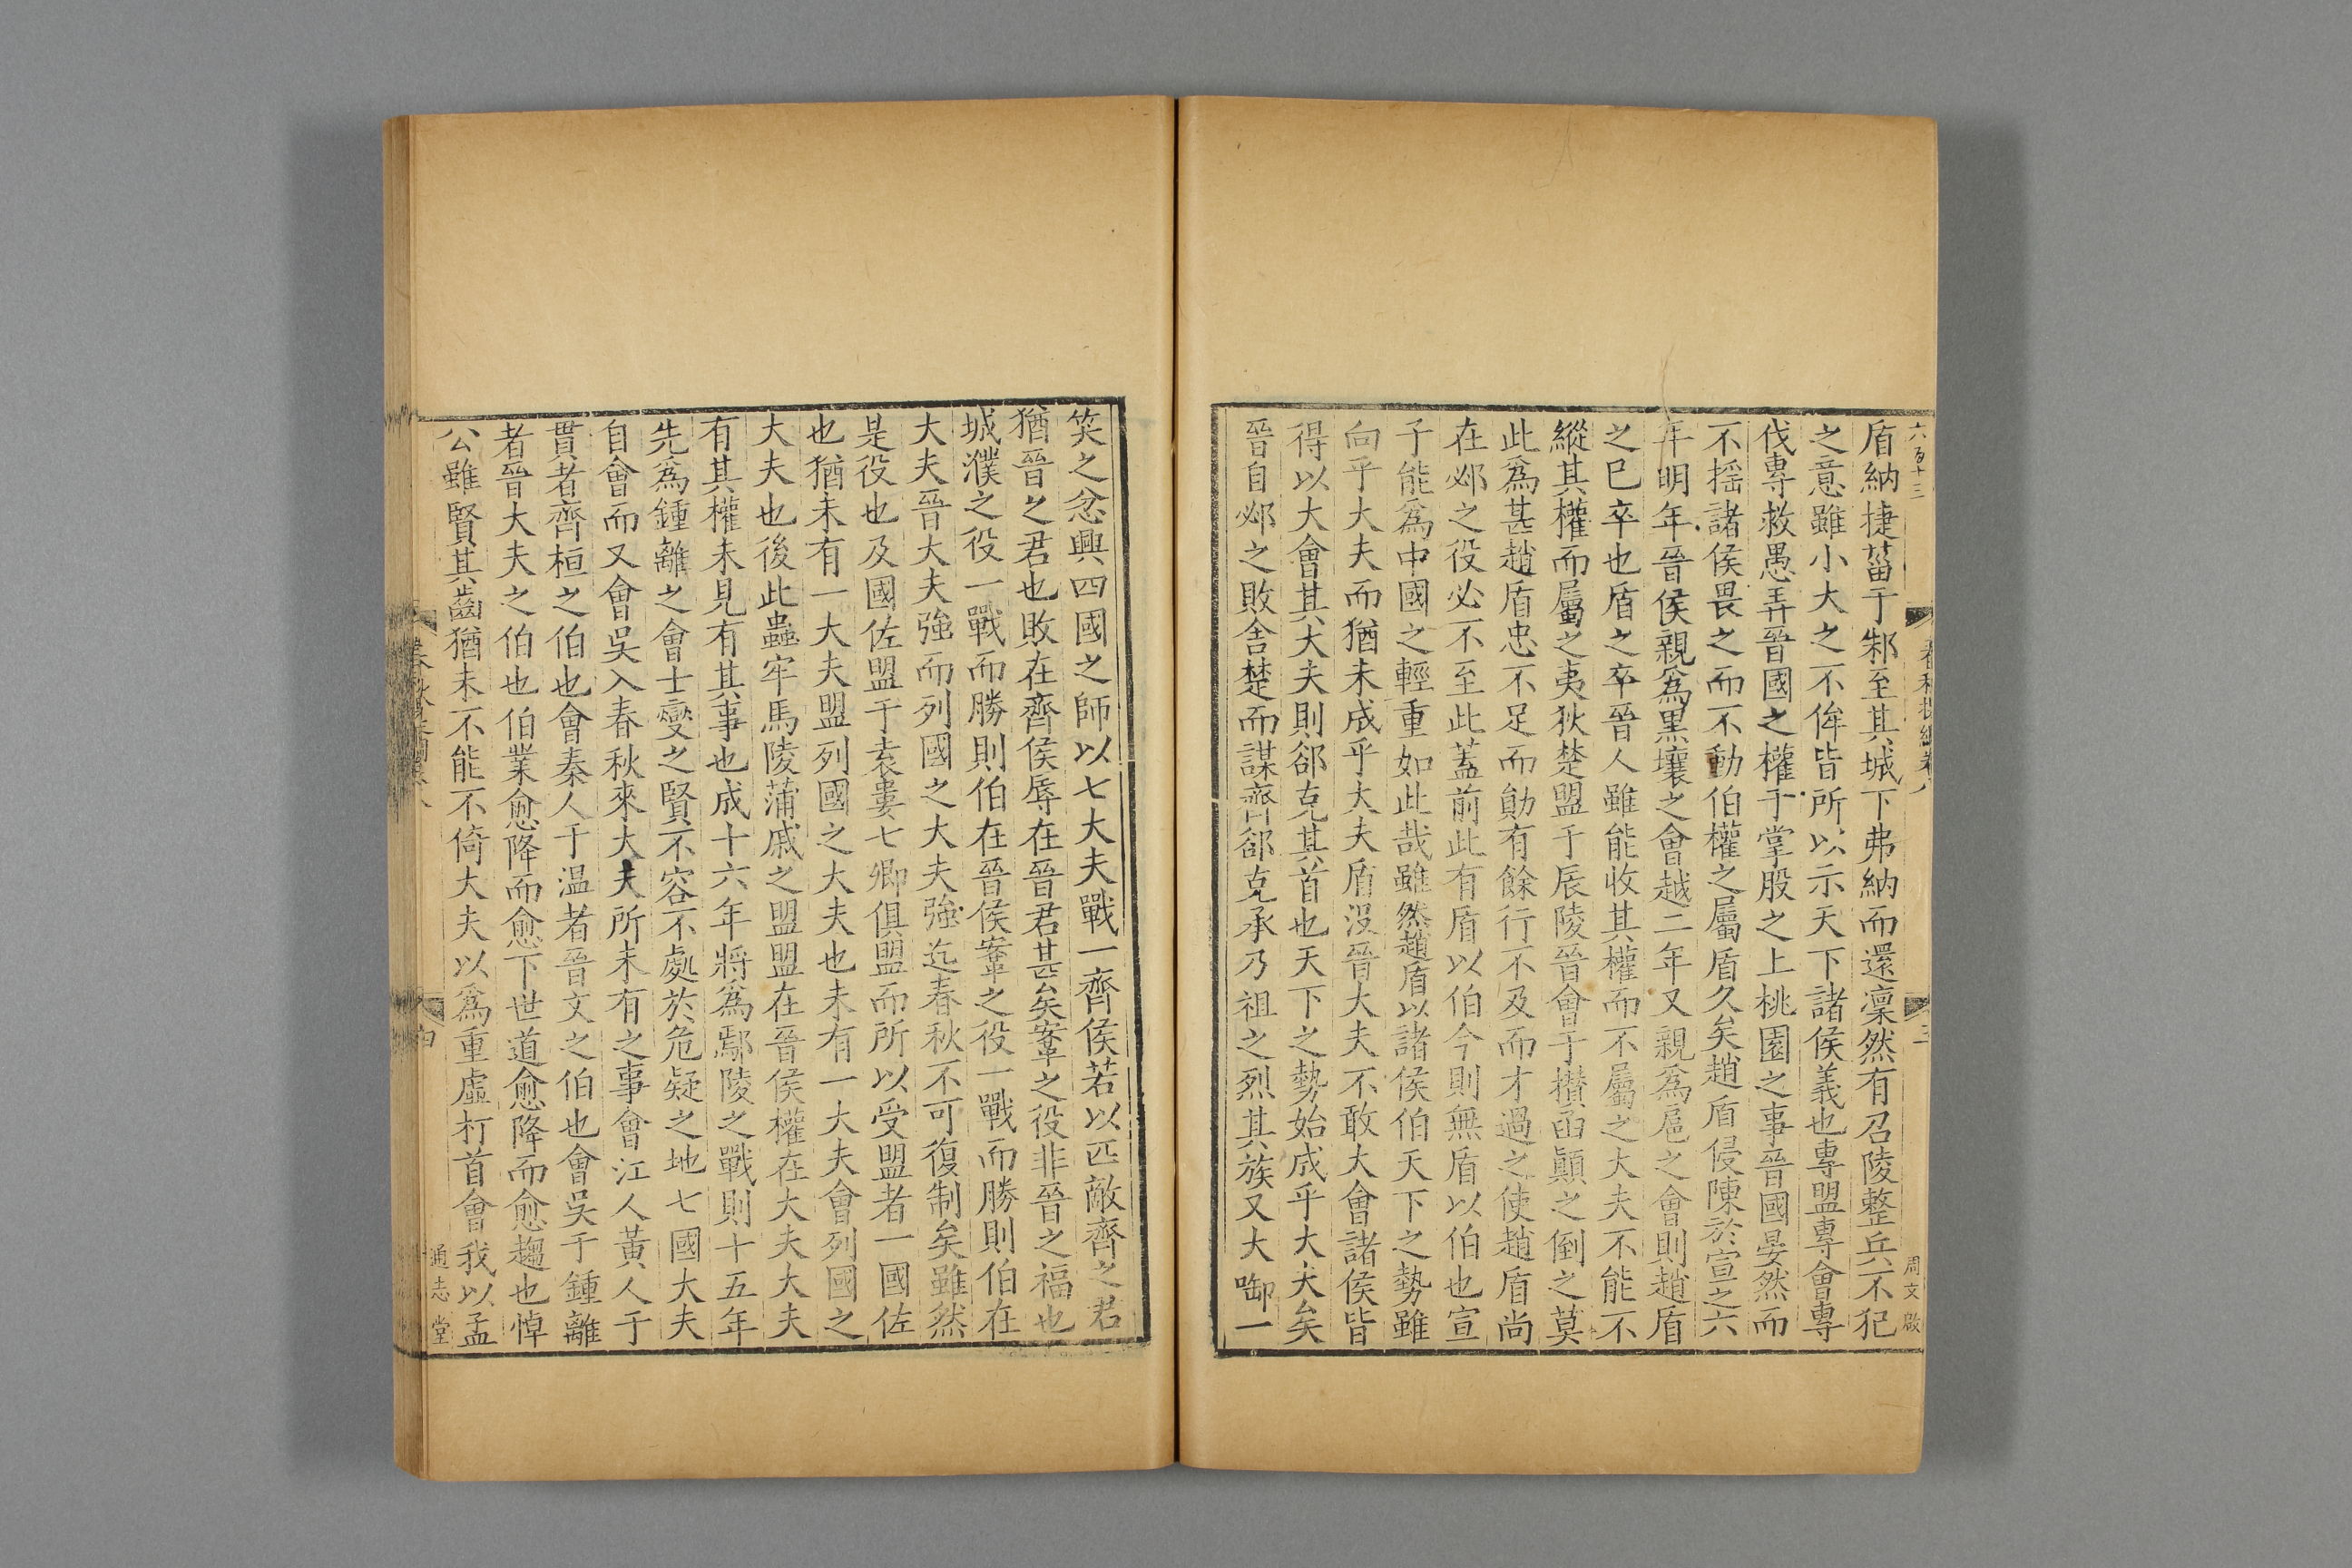 六百十三
周文啟
三
盾納捷菑于邾至其城下弗納而還凜然有召陵整兵不犯
之意雖小大之不侔皆所以示天下諸侯義也專盟專會專
伐專救愚弄晉國之權于掌股之上桃園之事晉國晏然而
不搖諸侯畏之而不動伯權之屬盾久矣趙盾侵陳於宣之六
年明年晉侯親爲黑壤之會越二年又親爲扈之會則趙盾
之巳卒也盾之卒晉人雖能收其權而不屬之大夫不能不
縱其權而屬之夷狄楚盟于辰陵晉會于攅函顚之倒之莫
此爲甚趙盾忠不足而勛有餘行不及而才過之使趙盾尚
在邲之役必不至此蓋前此有盾以伯今則無盾以伯也宣
子能爲中國之輕重如此哉雖然趙盾以諸侯伯天下之勢雖
向乎大夫而猶未成乎大夫盾沒晉大夫不敢大會諸侯皆
得以大會其大夫則郤克其首也天下之勢始成乎大夫矣
晉自邲之敗舍楚而謀齊郤克承乃祖之烈其族又大啣一
笑之忿興四國之師以七大夫戰一齊侯若以匹敵齊之君
猶晉之君也敗在齊侯辱在晉君甚矣鞌之役非晉之福也
城濮之役一戰而勝則伯在晉侯鞌之役一戰而勝則伯在
大夫晉大夫強而列國之大夫強迄春秋不可復制矣雖然
是役也及國佐盟于袁婁七卿俱盟而所以受盟者一國佐
也猶未有一大夫盟列國之大夫也未有一大夫會列國之
大夫也後此蟲牢馬陵蒲戚之盟盟在晉侯權在大夫大夫
有其權未見有其事也成十六年將爲鄢陵之戰則十五年
先爲鍾離之會士燮之賢不容不處於危疑之地七國大夫
自會而又會吳入春秋來大夫所未有之事會江人黃人于
貫者齊桓之伯也會秦人于温者晉文之伯也會吳于鍾離
者晉大夫之伯也伯業愈降而愈下世道愈降而愈趨也悼
公雖賢其齒猶未不能不倚大夫以爲重虛朾首會我以孟
通志堂